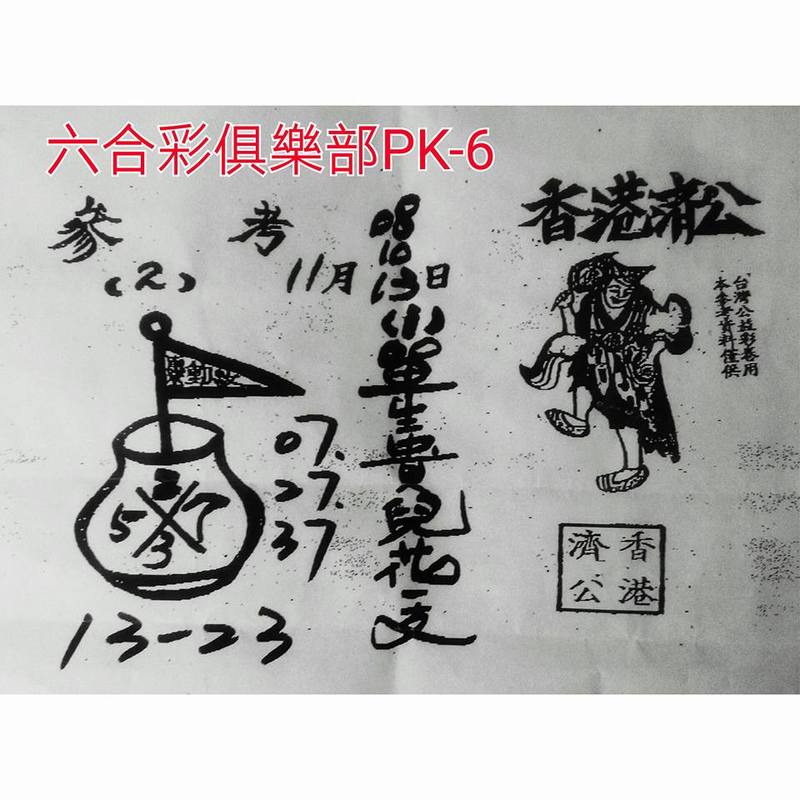 六合彩俱樂部PK-6
香港濟公
台灣公益彩卷用
本參考資料僅供
參考
(2)
11月
日
08
10
13
(小)
單生貴兒花一支
07.
27.
37
2
5
7
3
13-23
香港
濟公